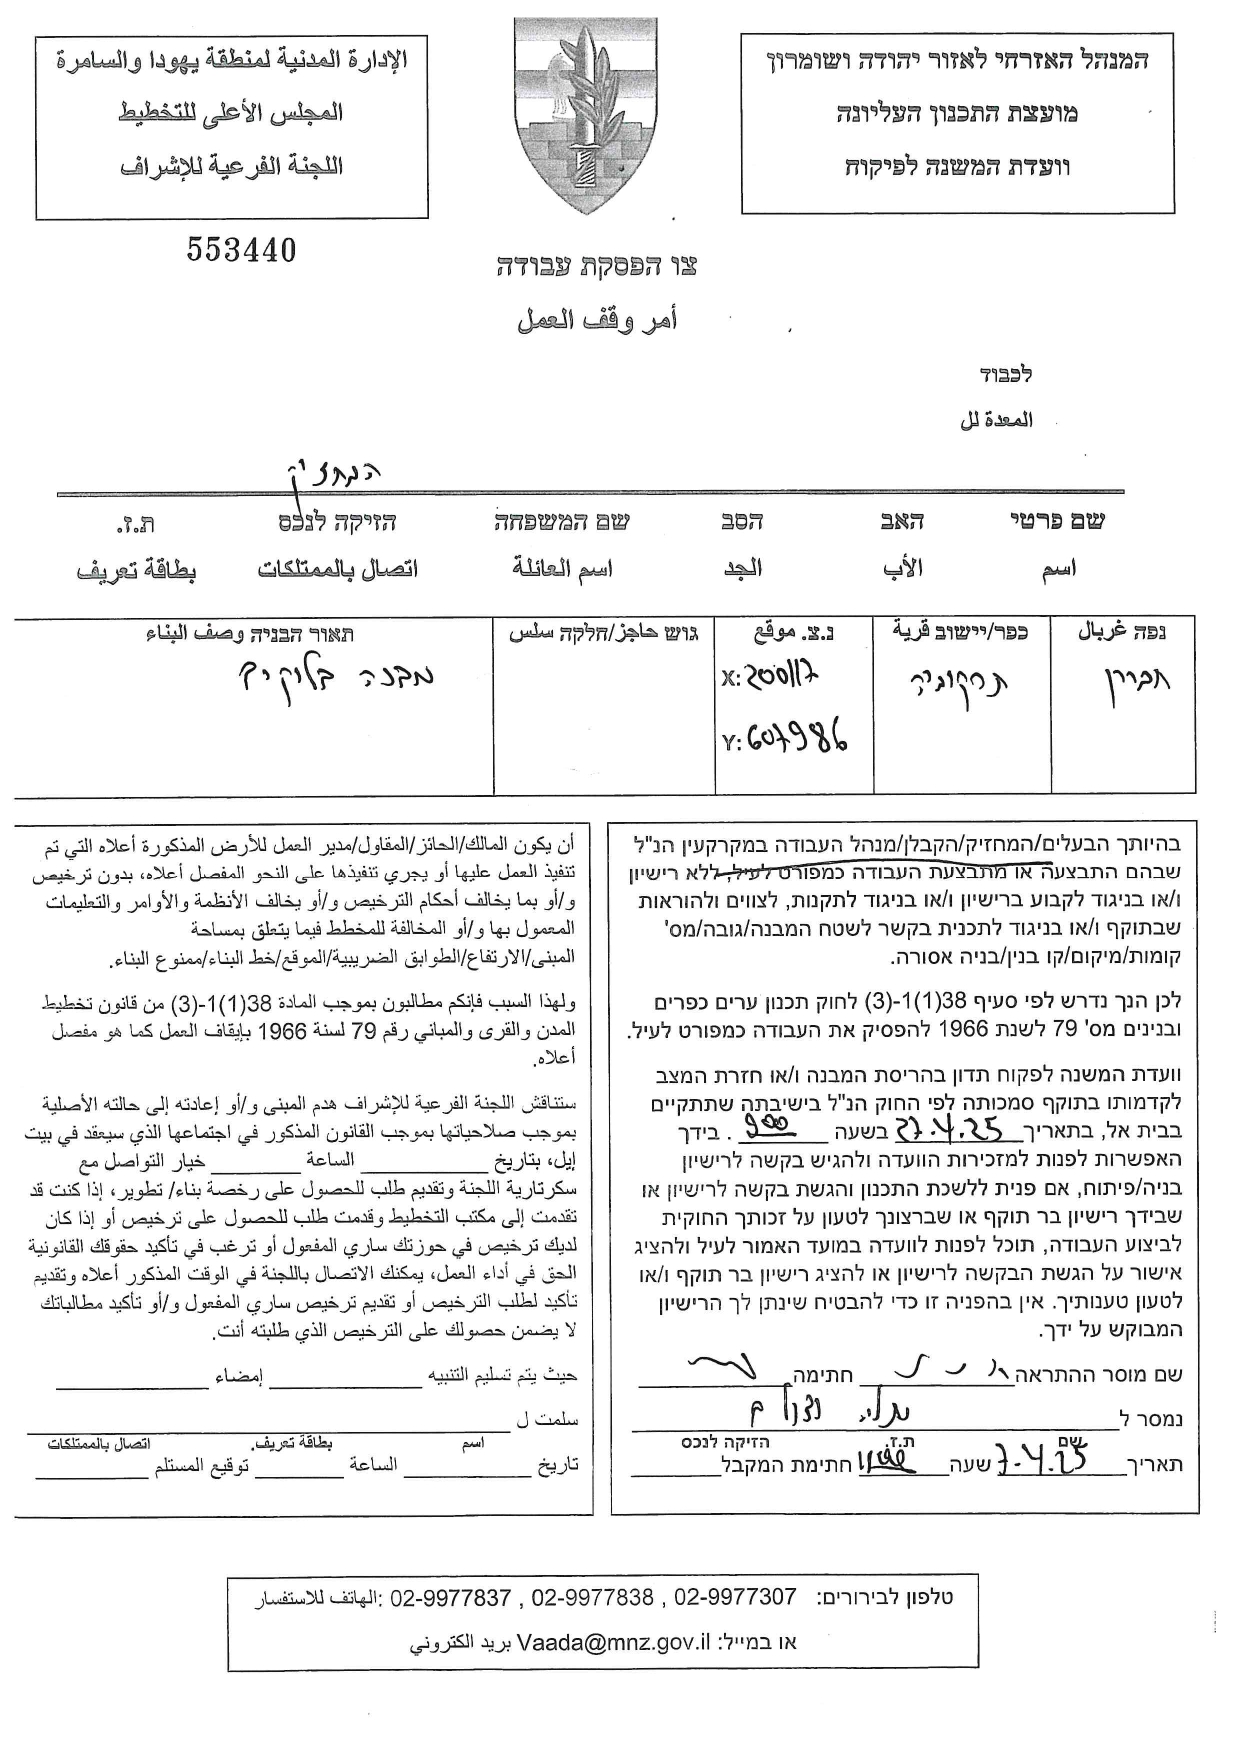 המנהל האזרחי לאזור יהודה ושומרון
מועצת התכנון העליונה
וועדת המשנה לפיקוח
الإدارة المدنية لمنطقة يهودا والسامرة
المجلس الأعلى للتخطيط
اللجنة الفرعية للإشراف
553440
צו הפסקת עבודה
أمر وقف العمل
לכבוד
المعدة لل
המחזיק
שם פרטי האב הסב שם המשפחה הזיקה לנכס ת.ז.
اسم الأب الجد اسم العائلة اتصال بالممتلكات بطاقة تعريف
נפה غربال כפר/יישוב قرية נ.צ. موقع גוש حاجز/חלקה سلس תאור הבניה وصف البناء
חברון תרקומיה X: 200117 מבנה בלוקים
Y: 607986
בהיותך הבעלים/המחזיק/הקבלן/מנהל העבודה במקרקעין הנ"ל
שבהם התבצעה או מתבצעת העבודה כמפורט לעיל, ללא רישיון
ו/או בניגוד לקבוע ברישיון ו/או בניגוד לתקנות, לצווים ולהוראות
שבתוקף ו/או בניגוד לתכנית בקשר לשטח המבנה/גובה/מס'
קומות/מיקום/קו בנין/בניה אסורה.
לכן הנך נדרש לפי סעיף 38(1)1-(3) לחוק תכנון ערים כפרים
ובנינים מס' 79 לשנת 1966 להפסיק את העבודה כמפורט לעיל.
וועדת המשנה לפקוח תדון בהריסת המבנה ו/או חזרת המצב
לקדמותו בתוקף סמכותה לפי החוק הנ"ל בישיבתה שתתקיים
בבית אל, בתאריך 27.4.25 בשעה 900 . בידך
האפשרות לפנות למזכירות הוועדה ולהגיש בקשה לרישיון
בניה/פיתוח, אם פנית ללשכת התכנון והגשת בקשה לרישיון או
שבידך רישיון בר תוקף או שברצונך לטעון על זכותך החוקית
לביצוע העבודה, תוכל לפנות לוועדה במועד האמור לעיל ולהציג
אישור על הגשת הבקשה לרישיון או להציג רישיון בר תוקף ו/או
לטעון טענותיך. אין בהפניה זו כדי להבטיח שינתן לך הרישיון
המבוקש על ידך.
שם מוסר ההתראה חתימה
נמסר ל
שם ת.ז. הזיקה לנכס
תאריך 7.4.25 שעה חתימת המקבל
أن يكون المالك/الحائز/المقاول/مدير العمل للأرض المذكورة أعلاه التي تم
تنفيذ العمل عليها أو يجري تنفيذها على النحو المفصل أعلاه، بدون ترخيص
و/أو بما يخالف أحكام الترخيص و/أو يخالف الأنظمة والأوامر والتعليمات
المعمول بها و/أو المخالفة للمخطط فيما يتعلق بمساحة
المبنى/الارتفاع/الطوابق الضريبية/الموقع/خط البناء/ممنوع البناء.
ولهذا السبب فإنكم مطالبون بموجب المادة 38(1)1-(3) من قانون تخطيط
المدن والقرى والمباني رقم 79 لسنة 1966 بإيقاف العمل كما هو مفصل
أعلاه.
ستناقش اللجنة الفرعية للإشراف هدم المبنى و/أو إعادته إلى حالته الأصلية
بموجب صلاحياتها بموجب القانون المذكور في اجتماعها الذي سيعقد في بيت
إيل، بتاريخ الساعة خيار التواصل مع
سكرتارية اللجنة وتقديم طلب للحصول على رخصة بناء/ تطوير، إذا كنت قد
تقدمت إلى مكتب التخطيط وقدمت طلب للحصول على ترخيص أو إذا كان
لديك ترخيص في حوزتك ساري المفعول أو ترغب في تأكيد حقوقك القانونية
الحق في أداء العمل، يمكنك الاتصال باللجنة في الوقت المذكور أعلاه وتقديم
تأكيد لطلب الترخيص أو تقديم ترخيص ساري المفعول و/أو تأكيد مطالباتك
لا يضمن حصولك على الترخيص الذي طلبته أنت.
حيث يتم تسليم التنبيه إمضاء
سلمت ل
اسم بطاقة تعريف. اتصال بالممتلكات
تاريخ الساعة توقيع المستلم
טלפון לבירורים: 02-9977307 , 02-9977838 , 02-9977837 :الهاتف للاستفسار
או במייל: Vaada@mnz.gov.il بريد الكتروني